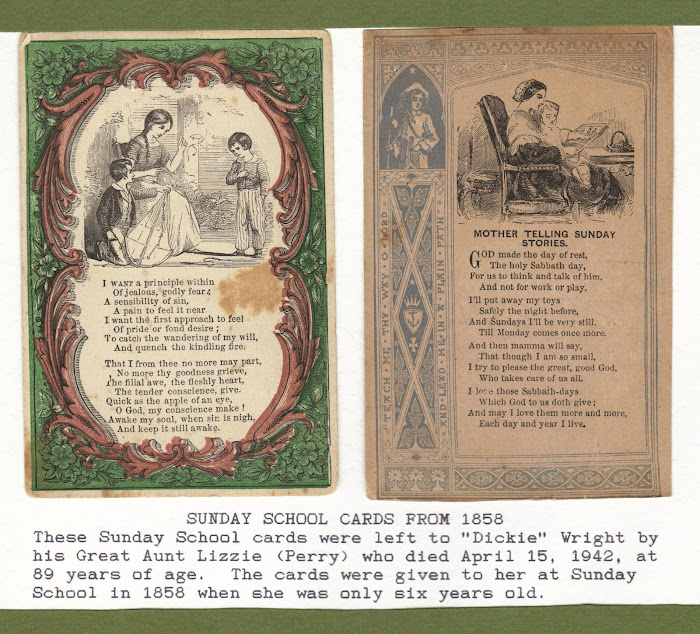 I WANT a principle within
Of jealous, godly fear;
A sensibility of sin,
A pain to feel it near
I want the first approach to feel
Of pride or fond desire;
To catch the wandering of my will,
And quench the kindling fire.
That I from thee no more may part,
No more thy goodness grieve,
The filial awe, the fleshly heart,
The tender conscience, give.
Quick as the apple of an eye,
O God, my conscience make!
Awake my soul, when sin is nigh,
And keep it still awake.
TEACH · ME · THY · WAY · O · LORD
AND · LEAD · ME · IN · A · PLAIN · PATH
MOTHER TELLING SUNDAY
STORIES.
GOD made the day of rest,
The holy Sabbath day,
For us to think and talk of him,
And not for work or play.
I'll put away my toys
Safely the night before,
And Sundays I'll be very still,
Till Monday comes once more.
And then mamma will say,
That though I am so small,
I try to please the great, good God,
Who takes care of us all.
I love those Sabbath-days
Which God to us doth give;
And may I love them more and more,
Each day and year I live.
SUNDAY SCHOOL CARDS FROM 1858
These Sunday School cards were left to "Dickie" Wright by
his Great Aunt Lizzie (Perry) who died April 15, 1942, at
89 years of age. The cards were given to her at Sunday
School in 1858 when she was only six years old.